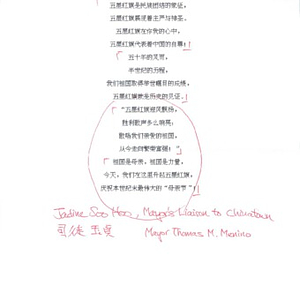 五星红旗是民族团结的象征。
五星红旗展现着主严与神圣。
五星红旗在你我的心中。
五星红旗代表着中国的自尊!
五十年的风雨,
半世纪的历程,
我们祖国取得举世瞩目的成绩,
五星红旗就是历史的见证。
"五星红旗迎风飘扬,
胜利歌声多么响亮;
歌唱我们亲爱的祖国,
从今走向繁荣富强!
祖国是母亲,祖国是力量。
今天,我们在这里升起五星红旗,
庆祝本世纪最伟大的"母亲节"!
Jadine Soo Hoo, Mayor's Liaison to Chinatown
司徒玉贞
Mayor Thomas M. Menino